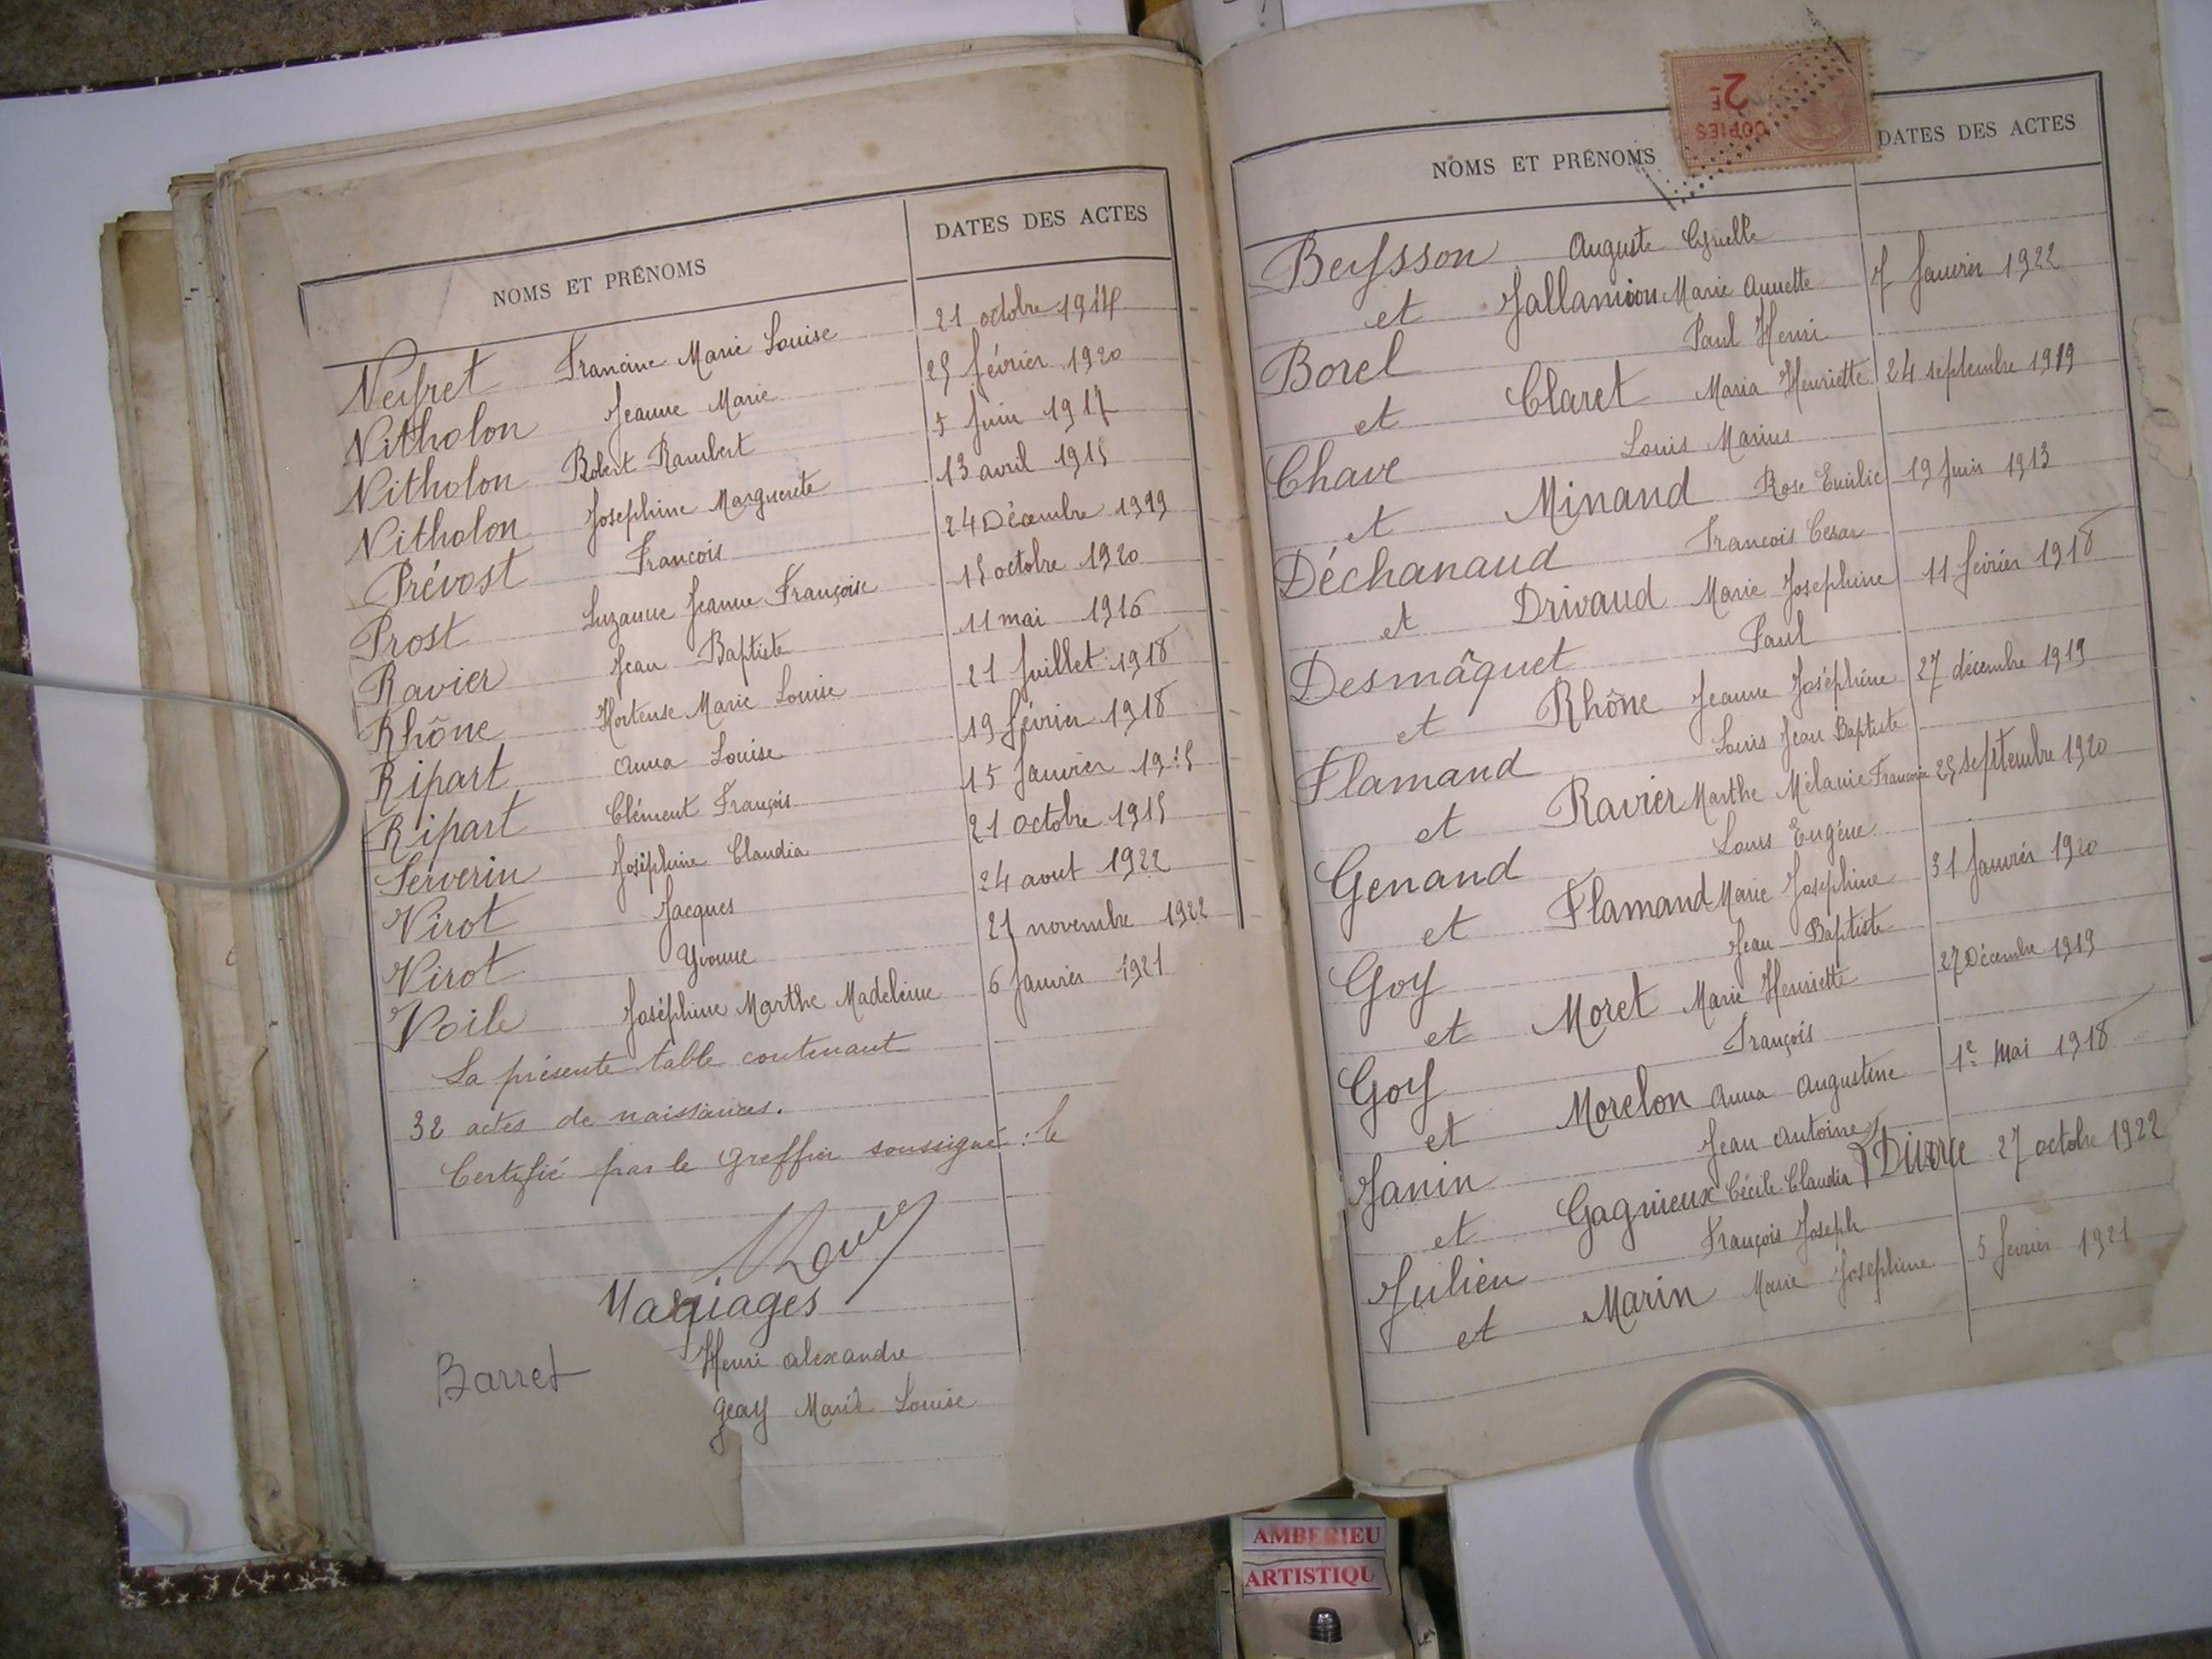 NOMS ET PRÉNOMS DATES DES ACTES
Neyret Francine Marie Louise 21 octobre 1914
Nitholon Jeanne Marie 29 février 1920
Nitholon Robert Rambert 5 Juin 1917
Nitholon Josephine Marguerite 13 avril 1915
Prévost François 24 Décembre 1919
Prost Suzanne Jeanne Françoise 15 octobre 1920
Ravier Jean Baptiste 11 mai 1916
Rhône Hortense Marie Louise 21 Juillet 1918
Ripart Anna Louise 19 février 1918
Ripart Clément François 15 Janvier 1915
Serverin Joséphine Claudia 21 octobre 1915
Virot Jacques 24 aout 1922
Virot Yvonne novembre 1922
Voile Joséphine Marthe Madeleine 6 Janvier 1921
La présente table contenant
32 actes de naissances.
Certifié par le Greffier soussigné : le
Mariages
Barret Henri alexandre
Geay Marie Louise
COPIES
2F
NOMS ET PRÉNOMS DATES DES ACTES
Beysson Auguste
et Jallamion Marie Annette 7 Janvier 1922
Borel Paul Henri
et Claret Maria Henriette 24 septembre 1919
Chave Louis Marius
et Minand Rose Emilie 19 Juin 1913
Déchanaud François Cesar
et Drivaud Marie Josephine 11 février 1918
Desmâquet Paul
et Rhône Jeanne Joséphine 27 décembre 1919
Flamand Louis Jean Baptiste
et Ravier Marthe Mélanie 25 septembre 1920
Genand Louis Eugène
et Flamand Marie Josephine 31 Janvier 1920
Goy Jean Baptiste
et Moret Marie Henriette 27 Décembre 1919
Goy François
et Morelon Anna Augustine 1e Mai 1918
Janin Jean Antoine
et Gagnieux Cécile Claudia Divorce 27 octobre 1922
Julien François Joseph
et Marin Marie Josephine 5 fevrier 1921
AMBERIEU
ARTISTIQU